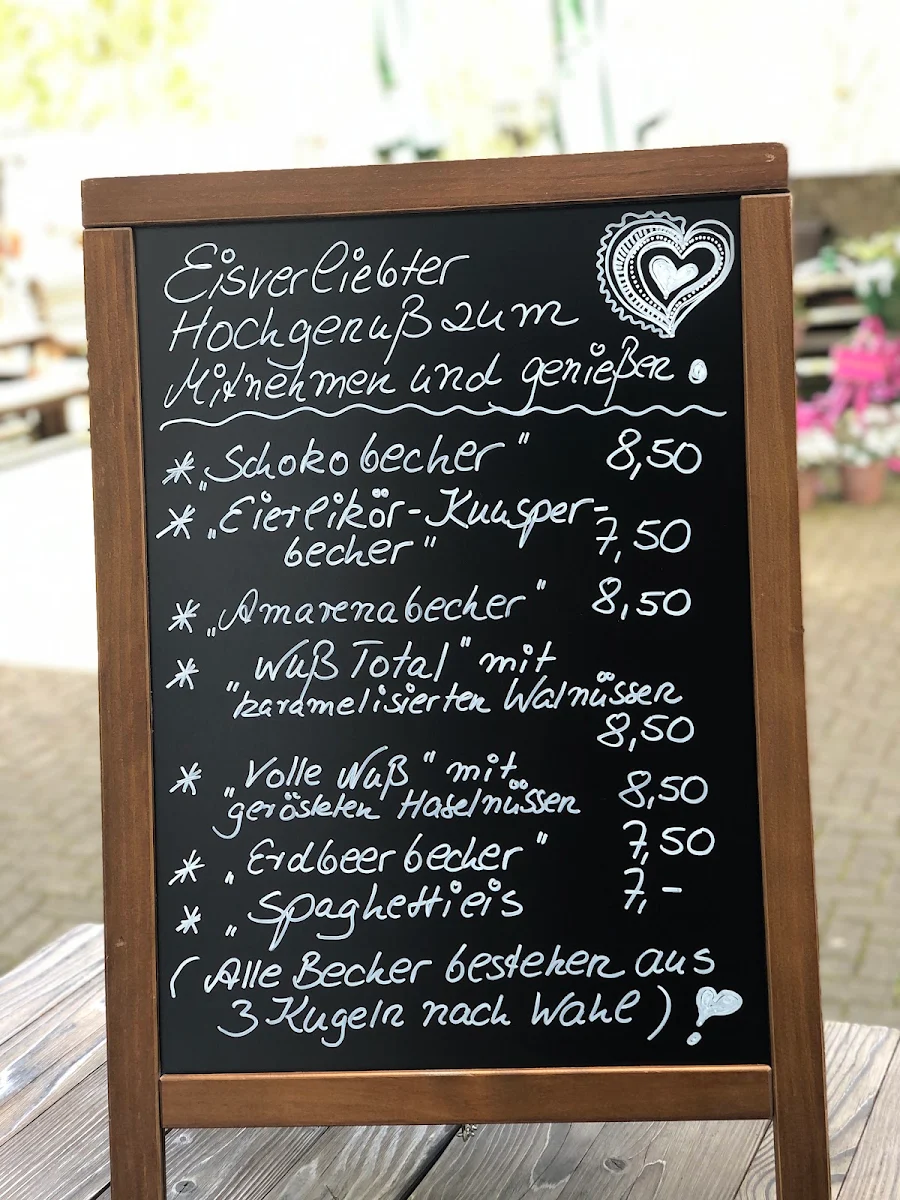 Eisverliebter
Hochgenuß zum
Mitnehmen und genießen.
* „Schokobecher" 8,50
* „Eierlikör-Knusper-
becher" 7,50
* „Amarenabecher" 8,50
* „Nuß Total" mit
karamelisierten Walnüssen
8,50
* „Volle Nuß" mit
gerösteten Haselnüssen 8,50
* „Erdbeerbecher" 7,50
* „Spaghettieis 7,-
(Alle Becher bestehen aus
3 Kugeln nach Wahl)!